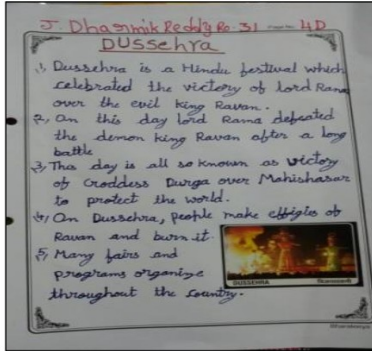 J. Dharmik Reddy Ro-31 Page No. 4D
DUSSehra
1, Dussehra is a Hindu festival which
celebrated the victory of lord Rama
over the evil king Ravan.
2, On this day lord Rama defeated
the demon king Ravan after a long
battle
3, This day is all so known as victory
of Goddess Durga over Mahishasar
to protect the world.
4, On Dussehra, people make effigies of
Ravan and burn it.
5, Many fairs and
programs organize
throughout the country.
DUSSEHRA